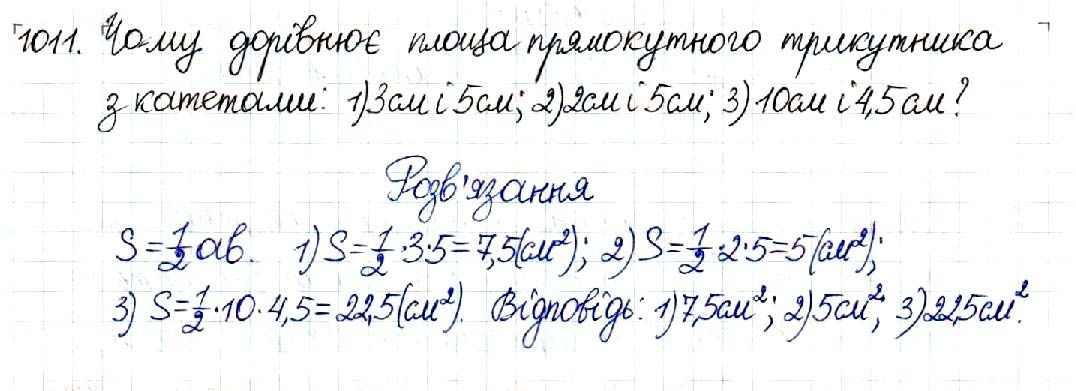 1011. Чому дорівнює площа прямокутного трикутника
з катетами: 1) 3 см і 5 см; 2) 2 см і 5 см; 3) 10 см і 4,5 см?
Розв'язання
S = 1/2 ab. 1) S = 1/2 · 3 · 5 = 7,5 (см²); 2) S = 1/2 · 2 · 5 = 5 (см²);
3) S = 1/2 · 10 · 4,5 = 22,5 (см²). Відповідь: 1) 7,5 см²; 2) 5 см²; 3) 22,5 см².